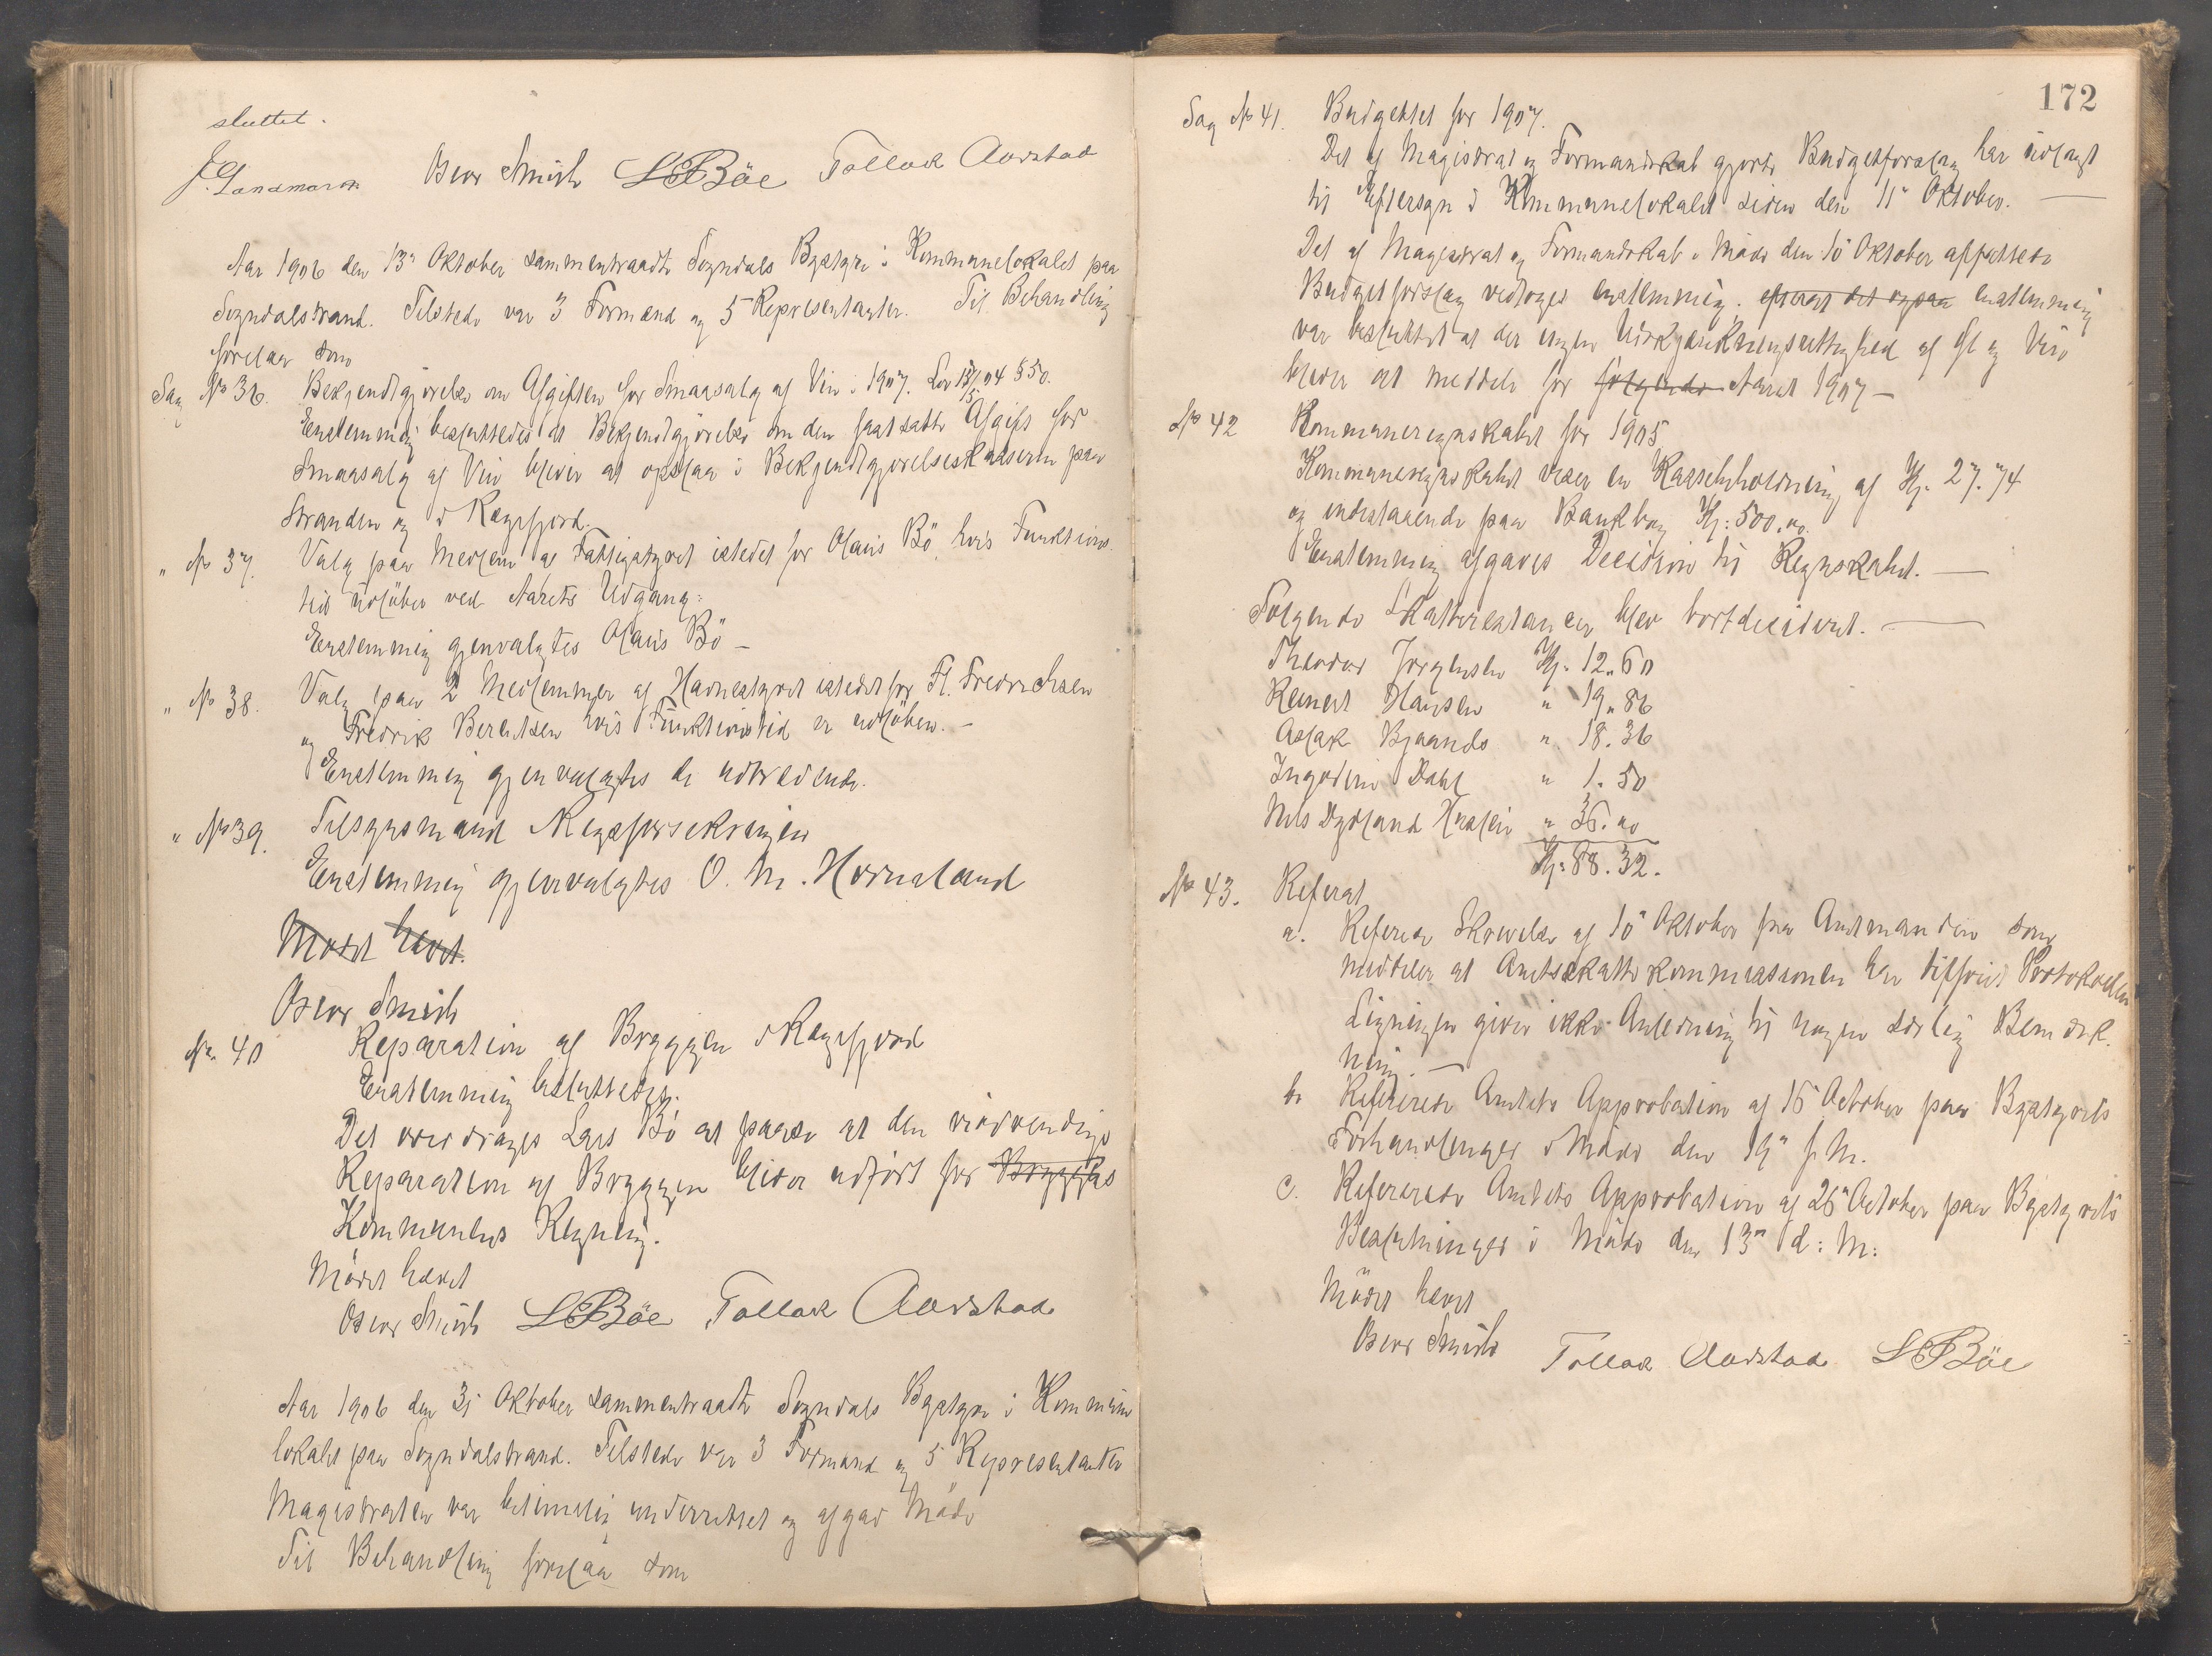 sluttet.
Oscar Smith LBBöe Tollak Aarstad
J. Landmark
Aar 1906 den 13de Oktober sammentraadte Sogndals Bystyre i Kommunelokalet paa
Sogndalstrand. Tilstede var 3 Formænd og 5 Repræsentanter. Til Behandling
forelaa som
Sag No 36. Bekjendtgjørelse om Afgiften for Smaasalg af Vin i 1907. Lov 15/04 §50.
Enstemmig besluttedes at Bekjendtgjörelse om den fastsatte Afgift for
Smaasalg af Vin bliver at opslaa i Bekjendtgjørelseskasserne paa
Stranden og i Rægefjord.
" No 37. Valg paa Medlem af Fattigstyret istedet for Olaus Bö, hvis Funktions-
tid udlöber ved Aarets Udgang.
Enstemmig gjenvalgtes Olaus Bö –
" No 38. Valg paa 2 Medlemmer af Havnestyret istedet for Fl. Fredrichsen
og Fredrik Berentsen hvis Funktionstid er udlöben. –
Enstemmig gjenvalgtes de udtrædende.
" No 39. Tilsynsmand Kvægforsikringen
Enstemmig gjenvalgtes O. M. Hovland
Mødet hævet.
Oscar Smith
No. 40 Reparation af Bryggen i Rægefjord
Enstemmig besluttedes.
Det overdrages Lars Bö at paase at den nödvendige
Reparation af Bryggen bliver udfört for Bryggens
Kommunens Regning.
Mödet hævet
Oscar Smith LBBöe Tollak Aarstad
Aar 1906 den 31 Oktober sammentraadte Sogndals Bystyre i Kommune
lokalet paa Sogndalstrand. Tilstede var 3 Formænd og 5 Repræsentanter
Magistraten var betimelig underrettet og afgav Møde
Til Behandling forelaa som
172
Sag No 41. Budgettet for 1907.
Det af Magistrat og Formandskab gjorte Budgetforslag har udlagt
til Eftersyn i Kommunelokalet siden den 11te Oktober. —
Det af Magistrat og Formandskab i Möde den 10 Oktober affattede
Budgetforslag vedtoges enstemmig, efterat det ogsaa enstemmig
var besluttet at der ingen Udskjænkningsrettighed af Øl og Vin
bliver at meddele for følgende Aaret 1907 –
No 42 Kommuneregnskabet for 1905.
Kommuneregnskabet viser en Kassebeholdning af Kr. 27.74
og indestaaende paa Bankbog Kr: 500.00.
Enstemmig afgaves Decision til Regnskabet. —
Følgende Skatterestancer blev bortdecideret. —
Theodor Jørgensen Kr. 12.60
Reinert Hansen " 19.86
Aslak Bjaando " 18.36
Ingoline Dahl " 1.50
Nils Dydland " 36.00
Kr: 88.32.
No 43. Referat
a. Refereredes Skrivelse af 10 Oktober fra Amtmanden som
meddeler at Amtsskattekommissionen har tilført Protokollen
Ligningen giver ikke Anledning til nogen særlig Bemærk-
ning. —
b. Refereredes Amtets Approbation af 15 October paa Bystyrets
Forhandlinger i Möde den 19de f. M.
c. Refereredes Amtets Approbation af 26 October paa Bystyrets
Beslutninger i Möde den 13de d: M:
Mödet hævet
Oscar Smith Tollak Aarstad LBBöe